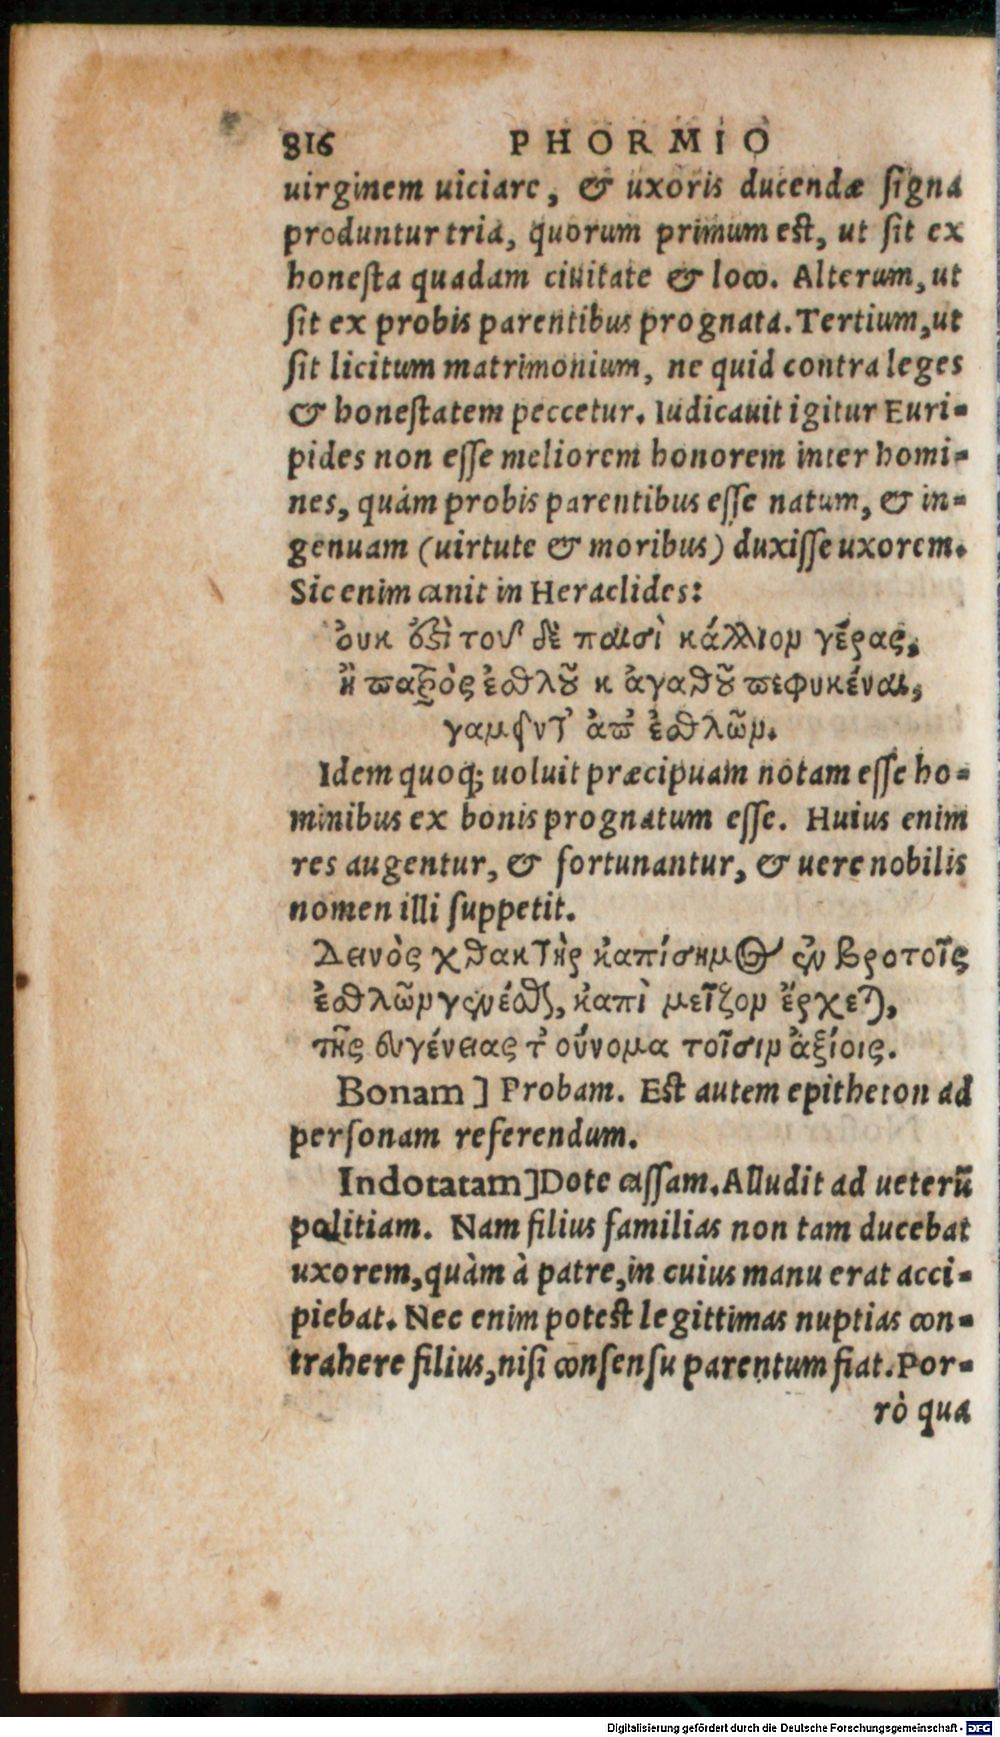 816 PHORMIO
uirginem uiciare, & uxoris ducendæ ſigna
produntur tria, quorum primum est, ut ſit ex
honeſta quadam ciuitate & loco. Alterum, ut
ſit ex probis parentibus prognata. Tertium, ut
ſit licitum matrimonium, ne quid contra leges
& honeſtatem peccetur. Iudicauit igitur Euri-
pides non eſſe meliorem honorem inter homi-
nes, quàm probis parentibus eſſe natum, & in-
genuam (uirtute & moribus) duxiſſe uxorem.
Sic enim canit in Heraclides:
ὀυκ ἔστι τοῦ δὲ παισὶ κάλλιον γέρας,
ἢ παςὸς ἐσθλοῦ κ ἀγαθοῦ πεφυκέναι,
γαμεῖν τ' ἀπ' ἐσθλῶν.
Idem quoq; uoluit præcipuam notam eſſe ho-
minibus ex bonis prognatum eſſe. Huius enim
res augentur, & fortunantur, & uere nobilis
nomen illi ſuppetit.
Δεινὸς χαρακτὴρ κἀπίσημος ἐν βροτοῖς
ἐσθλῶν γενέσθαι, κἀπὶ μεῖζον ἔρχεται,
τῆς εὐγένειας τ' οὔνομα τοῖσιν ἀξίοις.
Bonam ] Probam. Est autem epitheton ad
perſonam referendum.
Indotatam] Dote caſſam. Alludit ad ueterū
politiam. Nam filius familias non tam ducebat
uxorem, quàm à patre, in cuius manu erat acci-
piebat. Nec enim potest legittimas nuptias con-
trahere filius, niſi conſenſu parentum fiat. Por-
rò qua
Digitalisierung gefördert durch die Deutsche Forschungsgemeinschaft - DFG